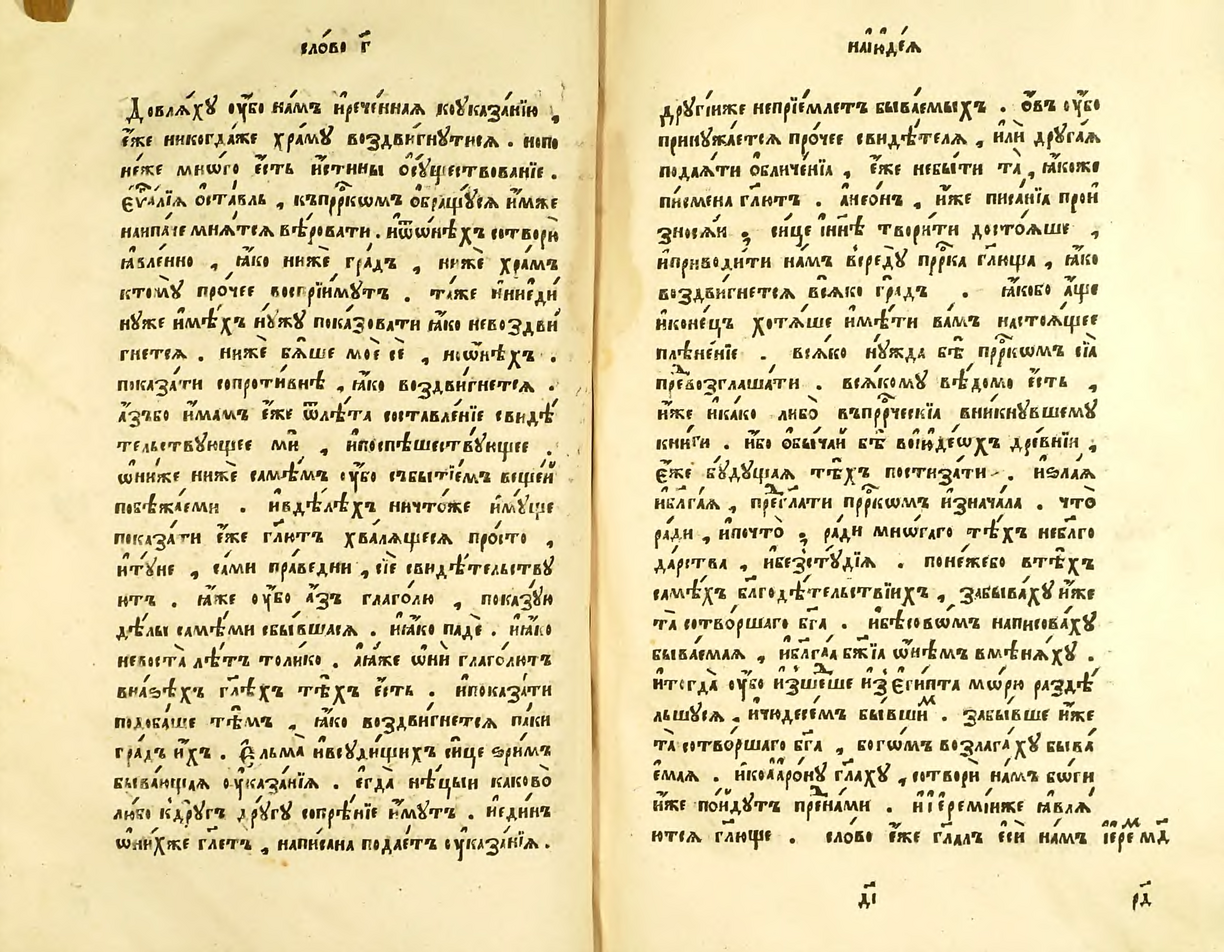 сло́во г҃
Довлѧ́хꙋ ᲂу҆́бо на́мъ и҆рече́ннаѧ коуказа́нїю ,
є҆́же никогда́же хра́мꙋ воздви́гнꙋтисѧ . нопо
не́же мнѡ́го є҆́сть и҆́стины ѻ҆сꙋществова́нїе .
є҆ѵⷢ҇а́лїѧ ѻ҆ста́вль , къпрⷪ҇ркѡмъ ѻ҆бращꙋ́сѧ и҆́мже
наипа́че мнѧ́тсѧ вѣ́ровати . и҆ѿѡ́нѣхъ сотворю̀
ꙗ҆вле́нно , ꙗ҆́ко нижѐ гра́дъ , нижѐ хра́мъ
ктомꙋ̀ про́чее воспрїи́мꙋтъ . та́же и҆ниеди
нꙋ́же и҆мѣ́хъ нꙋ́жꙋ показова́ти ꙗ҆́ко невоздви́
гнетсѧ . нижѐ бѧ́ше моѐ сѐ , ноѡ҆́нѣхъ .
показа́ти сопроти́внѣ , ꙗ҆́ко воздви́гнетсѧ .
а҆́зъбо и҆́мамъ є҆́же ѿлѣ́та составле́нїе свидѣ́
тельствꙋющее мѝ , и҆поспѣ́шествꙋющее .
ѡ҆ни́же нижѐ самѣ́мъ ᲂу҆́бо събытїе́мъ веще́й
побѣжа́еми . и҆вдѣ́лѣхъ ничто́же и҆мꙋ́ще
показа́ти є҆́же гл҃ютъ хвалѧ́щесѧ про́сто ,
и҆тꙋ́не , са́ми пра́ведни , сїѐ свидѣ́тельствꙋ
ютъ . ꙗ҆́же ᲂу҆́бо а҆́зъ глаго́лю , показꙋ́ю
дѣ́лы самѣ́ми сбы́вшаѧсѧ . и҆ꙗ҆́ко падѐ . и҆ꙗ҆́ко
невоста̀ лѣ́тъ толи́ко . а҆ꙗ҆́же ѡ҆нѝ глаго́лютъ
внаѕѣ́хъ гл҃ѣхъ тѣ́хъ є҆́сть . и҆показа́ти
подоба́ше тѣ́мъ , ꙗ҆́ко воздви́гнетсѧ па́ки
гра́дъ и҆́хъ . є҆льма̀ и҆всꙋ́дищихъ си́це ѕри́мъ
быва́ющаѧ ᲂу҆каза́нїѧ . є҆гда̀ нѣ́цыи каково̀
ли́бо кдрꙋ́гъ дрꙋ́гꙋ сопрѣ́нїе и҆́мꙋтъ . и҆еди́нъ
ѡ҆ни́хже гл҃етъ , напи́сана подае́тъ ᲂу҆каза́нїѧ .
наїꙋде́ѧ
дрꙋгі́иже непрїе́млетъ быва́емыхъ . ѻ҆́въ ᲂу҆́бо
принꙋжа́етсѧ про́чее свидѣ́телѧ , и҆лѝ дрꙋга́ѧ
подаѧ́ти ѻ҆бличе́нїѧ , є҆́же небы́ти та̀ , ꙗ҆́коже
пи́смена гл҃ютъ . а҆нео́нъ , и҆́же писа́нїѧ прои
зносѧ́и ; си́це і҆нн҃ѣ твори́ти досто́ѧше ,
и҆приводи́ти на́мъ вѐредꙋ прⷪ҇рка гл҃юща , ꙗ҆́ко
воздви́гнетсѧ всѧ́ко гра́дъ . ꙗ҆́кобо а҆́ще
и҆коне́цъ хотѧ́ше и҆мѣ́ти ва́мъ настоѧ́щее
плѣне́нїе . всѧ́ко нꙋ́жда бѣ̀ прⷪ҇ркѡмъ сїѧ̀
превозглаша́ти . всѧ́комꙋ вѣ́домо є҆́сть ,
и҆́же и҆ка́ко либо̀ въпрⷪ҇рческїѧ вни́кнꙋвшемꙋ
кни́ги . и҆́бо ѻ҆бы́чай бѣ̀ воїꙋде́ѡхъ дре́внїи ,
є҆́же бꙋ́дꙋщаѧ тѣ́хъ пости́зати . и҆ѕла́ѧ
и҆бл҃га́ѧ , преⷣгл҃ати прⷪ҇ркѡмъ и҆знача́ла . что̀
ра́ди , и҆почто̀ ; ра́ди мнѡ́гаго тѣ́хъ небл҃го
да́рства , и҆безстꙋ́дїѧ . поне́жебо втѣ́хъ
самѣ́хъ бл҃годѣ́тельствїихъ , забыва́хꙋ и҆́же
та̀ сотво́ршаго бг҃а . и҆бѣ́совѡмъ написова́хꙋ
быва́емаѧ , и҆бл҃га́ѧ бж҃їѧ ѡ҆нѣ́мъ вмѣнѧ́хꙋ .
и҆тогда̀ ᲂу҆́бо и҆зше́дше и҆зє҆гѵ́пта мѡ́рю раздѣ́
льшꙋсѧ , и҆чюдесе́мъ бы́вшиⷨ . забы́вше и҆́же
та̀ сотво́ршаго бг҃а , богѡ́мъ возлага́хꙋ быва́
емаѧ . и҆коа҆а҆ро́нꙋ гл҃ахꙋ , сотворѝ на́мъ бѡ́ги
и҆́же по́йдꙋтъ преⷣнами . и҆і҆еремі́иже ꙗ҆влѧ́
ютсѧ гл҃юще . сло́во є҆́же гл҃алъ є҆сѝ на́мъ і҆ере мⷣ҇
д҃і
р҃д